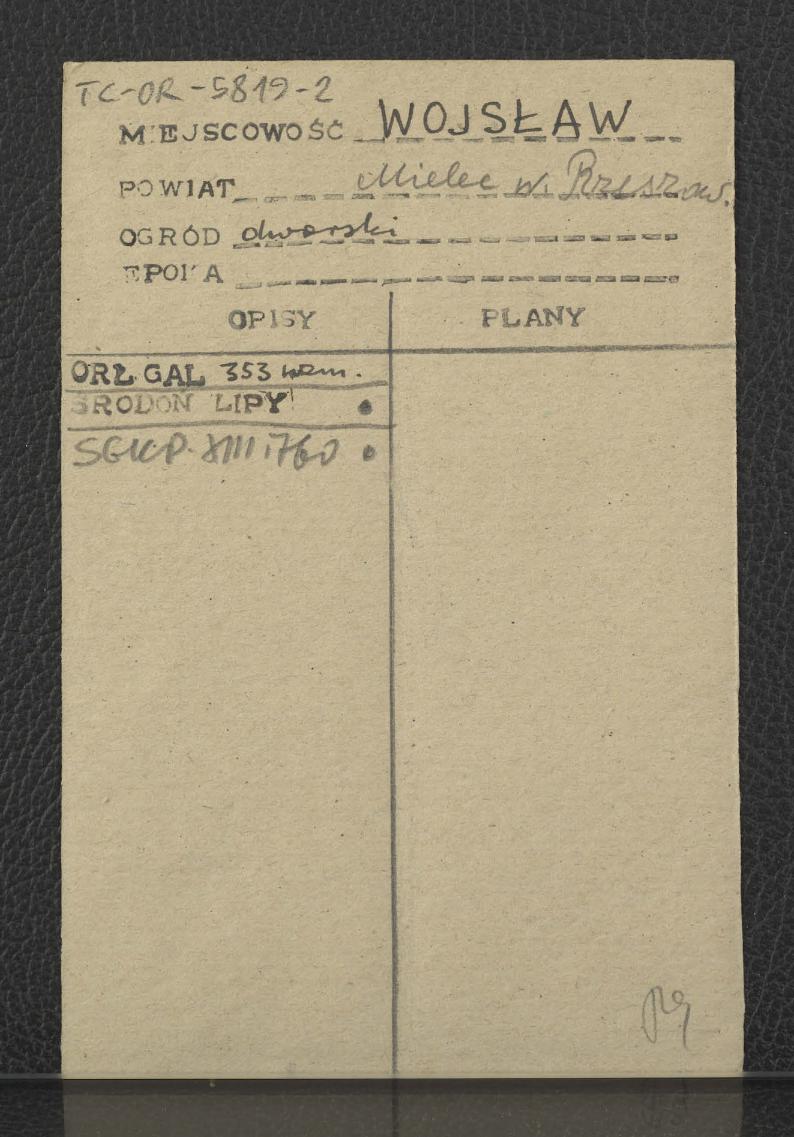 TC-OR-5819-2
MIEJSCOWOŚĆ WOJSŁAW
POWIAT Mielec w. Rzeszow.
OGRÓD dworski
EPOKA
OPISY PLANY
ORŁ. GAL 353 wzm.
ŚRODOŃ LIPY
SGKP. XIII. 760